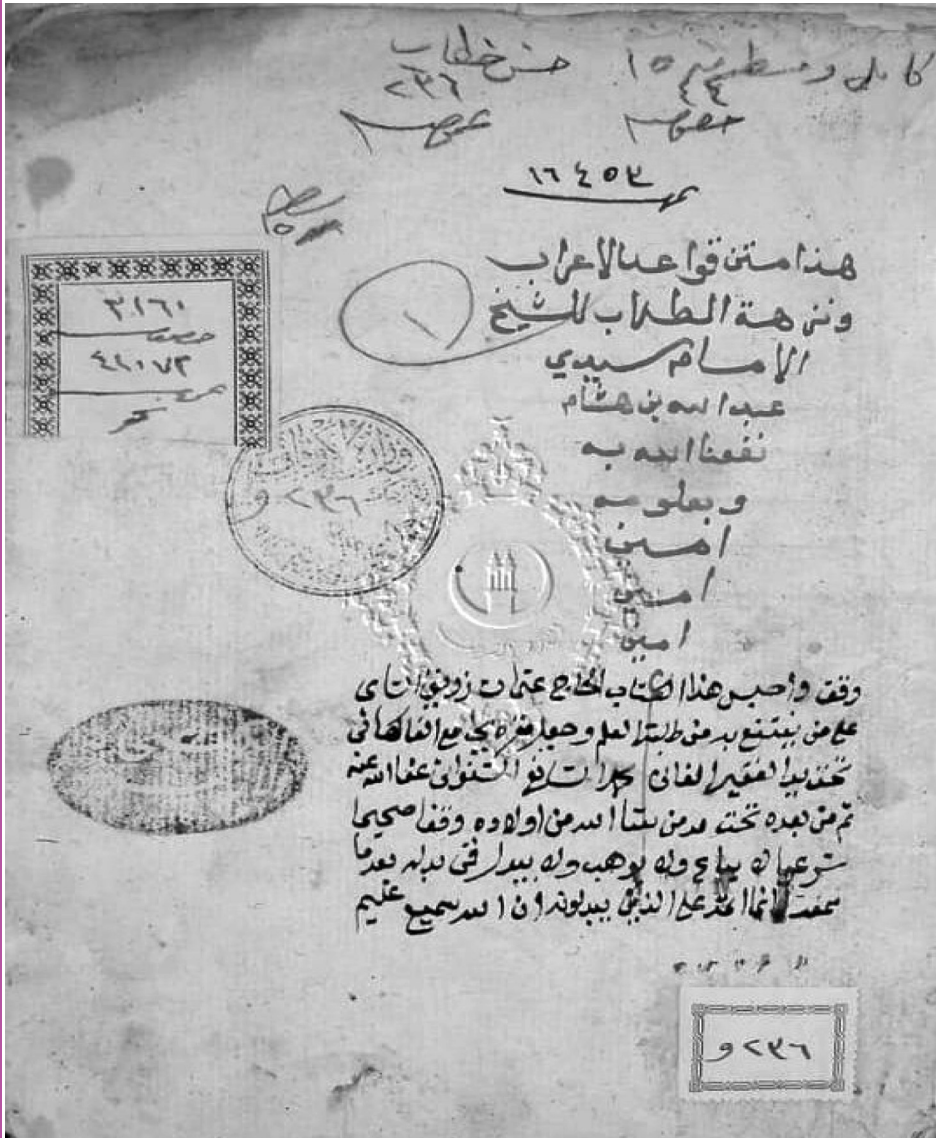 حسن خطاب
٢٣٦
١٦٤٥٣
هذا متن قواعد الاعراب
ونزهة الطلاب للشيخ
الامام سيدي
عبد الله بن هشام
نفعنا الله به
وبعلومه
امين
امين
امين
٣١٦٠
١
٢٣٦ و
وقف واحبس هذا الكتاب الحاج عثمان
على من ينتفع به من طلبة العلم وجعل مقره بجامع الفاكهاني
تحت يد الفقير الفاني الشنواني عفا الله عنه
ثم من بعده تحت يد من يشا الله من اولاده وقفا صحيحا
شرعيا لا يباع ولا يوهب ولا يبدل فمن بدله بعدما
سمعه فانما اثمه على الذين يبدلونه ان الله سميع عليم
٢٣٦ و